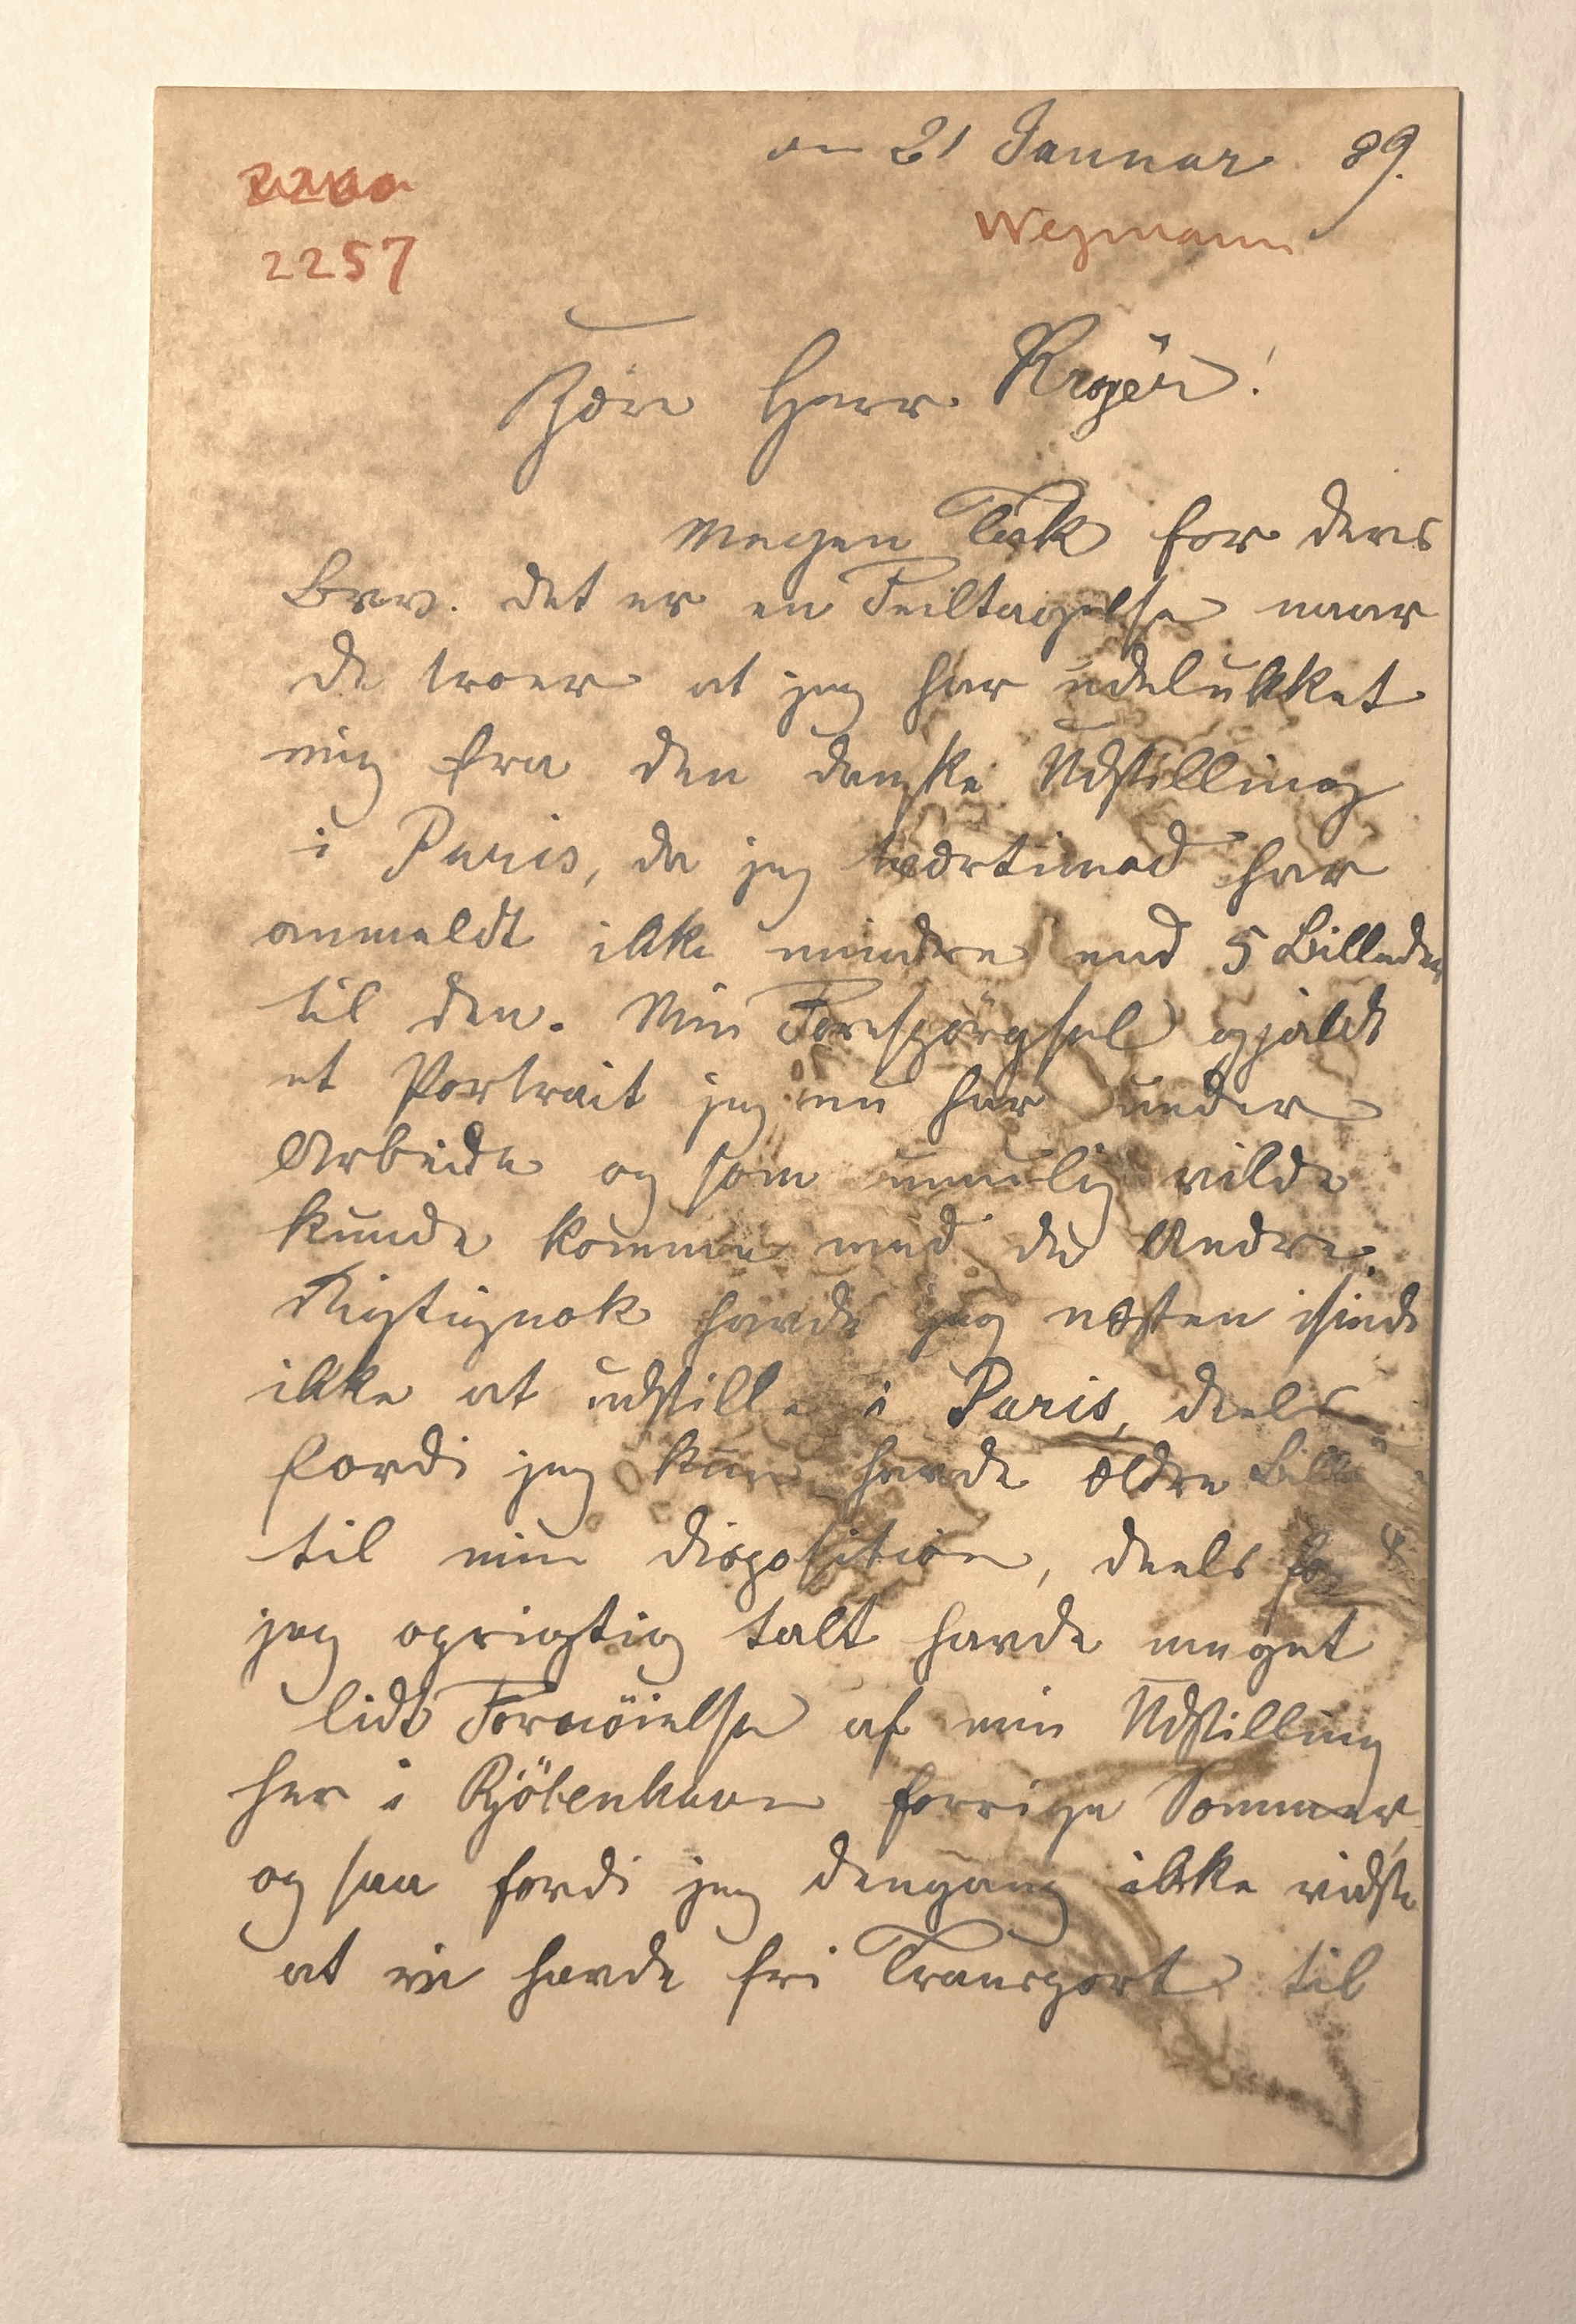 den 21 Januar 89.
2257
Wegmann
Kjöre Herr Krøyer!
Megen Tak for deres
Brev. det er en Feiltagelse naar
de troer at jeg har udelukket
mig fra den danske Udstilling
i Paris, da jeg tvertimod har
anmeldt ikke mindre end 5 Billeder
til den. Min Forespörgsel gjaldt
et Portrait jeg nu har under
Arbeide og som umulig vilde
kunde komme med de Andre.
Rigtignok havde jeg næsten isinde
ikke at udstille i Paris, deels
fordi jeg kun havde ældre
til min disposition, deels
jeg oprigtig talt havde meget
lidt Fornöielse af min Udstilling
her i Kjöbenhavn forrige Sommer,
og saa fordi jeg dengang ikke vidste
at vi havde fri Transport til